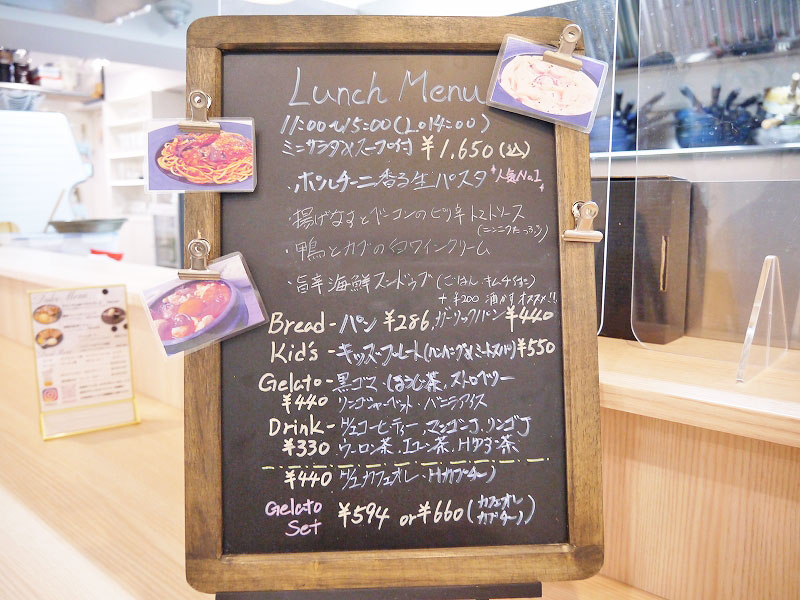 Lunch Menu
11:00〜15:00(Lo14:00)
ミニサラダ&スープ付 ¥1,650(込)
・ポルチーニ香る生パスタ 人気No.1
・揚げなすとベーコンのピリ辛トマトソース
(ニンニクたっぷり)
・鴨とカブの白ワインクリーム
・旨辛海鮮スンドゥブ(ごはん キムチ付)
+ ¥200 オススメ!!
Bread - パン ¥286. ガーリックパン ¥440
Kid's - キッズプレート(ハンバーグ&ミートスパ) ¥550
Gelato - 黒ゴマ・ほうじ茶.ストロベリー
¥440 リンゴシャーベット・バニラアイス
Drink - コーヒー.ティー.マンゴーJ.リンゴJ
¥330 ウーロン茶.コーン茶.Hゆず茶
¥440 カフェオレ・Hカプチーノ
Gelato Set ¥594 or ¥660(カフェオレ カプチーノ)